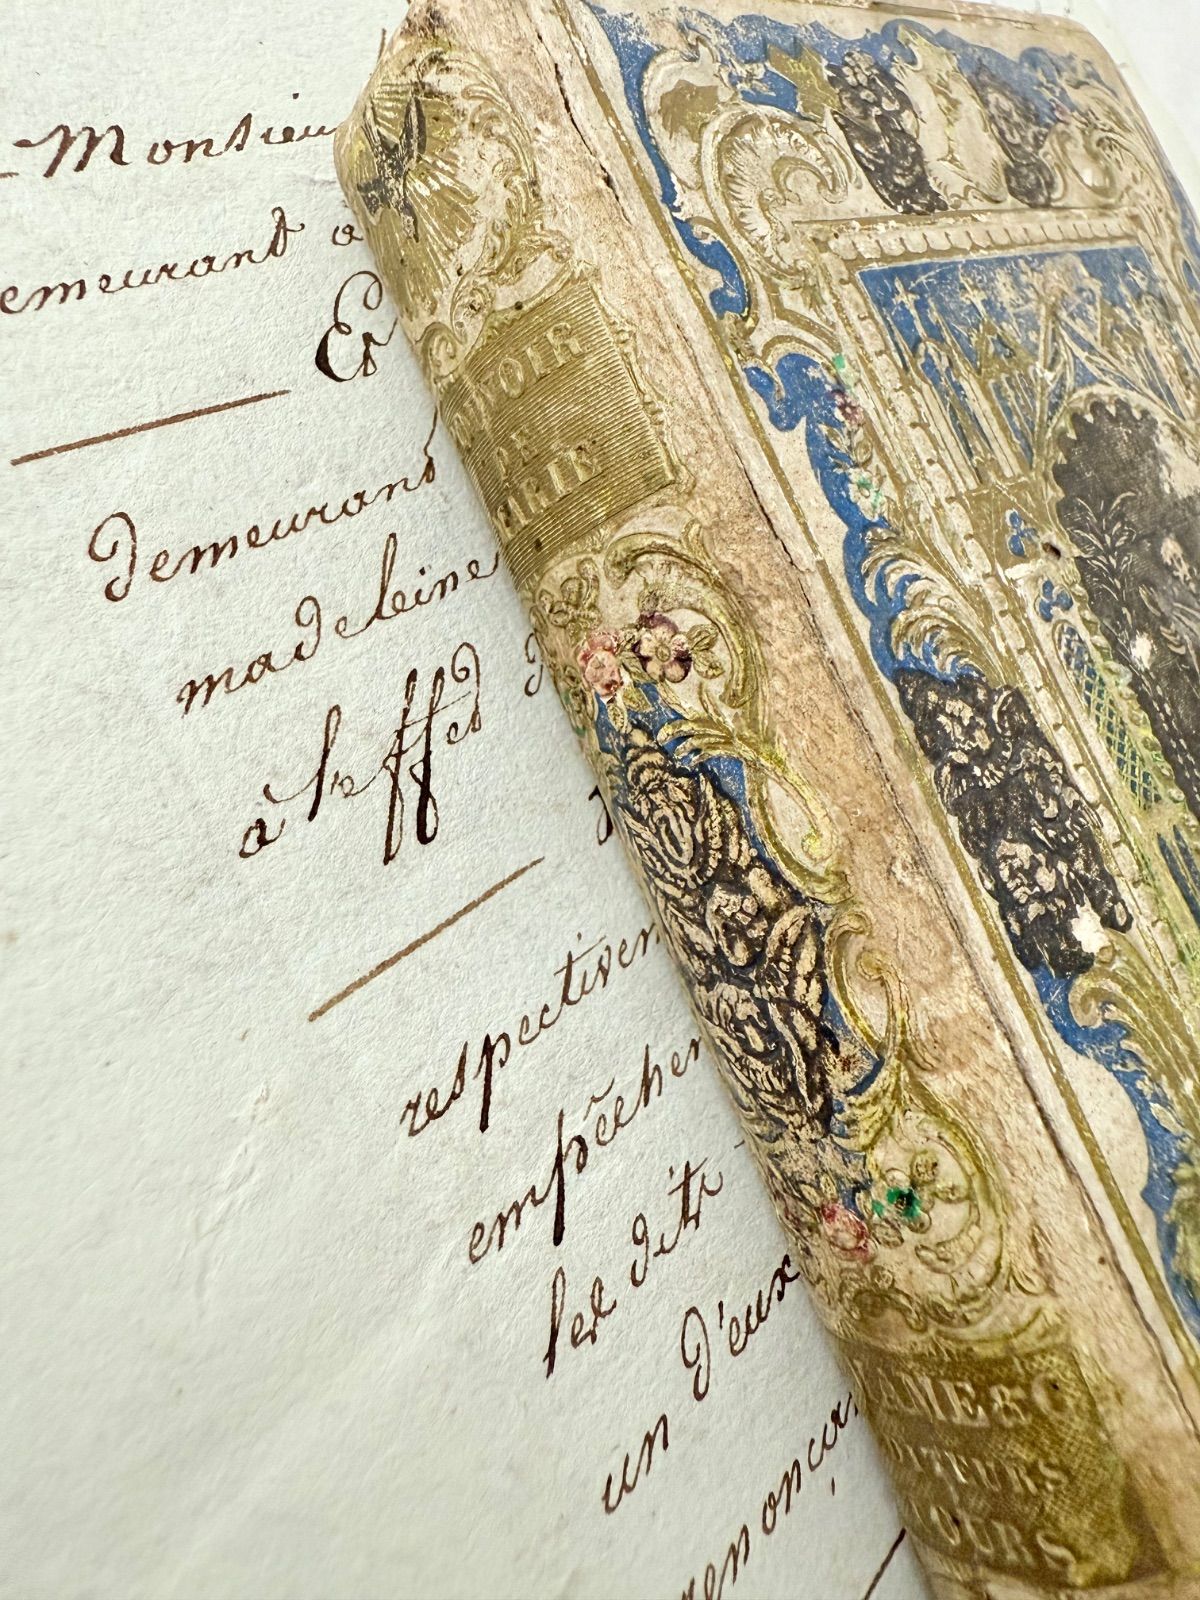 Monsieu
emeurant a
Et
demeurant
madeleine
à l'effet d
respectivem
empêcher
les dits
un d'eux
renoncia
VOIR
DE
AME & C
DITEURS
OURS